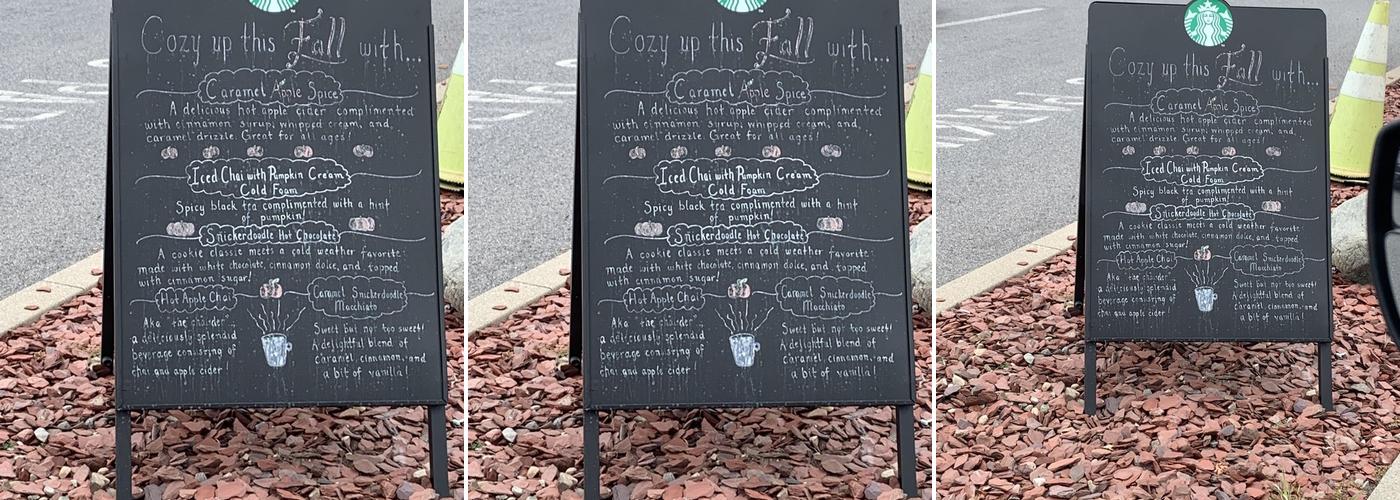 Cozy up this Fall with...
Caramel Apple Spice
A delicious hot apple cider complimented
with cinnamon syrup, whipped cream, and,
caramel drizzle. Great for all ages!
Iced Chai with Pumpkin Cream
Cold Foam
Spicy black tea complimented with a hint
of pumpkin!
Snickerdoodle Hot Chocolate
A cookie classic meets a cold weather favorite:
made with white chocolate, cinnamon dolce, and topped
with cinnamon sugar!
Hot Apple Chai
Aka "the chaider"
a deliciously splendid
beverage consisting of
chai and apple cider!
Caramel Snickerdoodle
Macchiato
Sweet but not too sweet!
A delightful blend of
caramel, cinnamon, and
a bit of vanilla!
Cozy up this Fall with...
Caramel Apple Spice
A delicious hot apple cider complimented
with cinnamon syrup, whipped cream, and,
caramel drizzle. Great for all ages!
Iced Chai with Pumpkin Cream
Cold Foam
Spicy black tea complimented with a hint
of pumpkin!
Snickerdoodle Hot Chocolate
A cookie classic meets a cold weather favorite:
made with white chocolate, cinnamon dolce, and topped
with cinnamon sugar!
Hot Apple Chai
Aka "the chaider"
a deliciously splendid
beverage consisting of
chai and apple cider!
Caramel Snickerdoodle
Macchiato
Sweet but not too sweet!
A delightful blend of
caramel, cinnamon, and
a bit of vanilla!
Cozy up this Fall with...
Caramel Apple Spice
A delicious hot apple cider complimented
with cinnamon syrup, whipped cream, and,
caramel drizzle. Great for all ages!
Iced Chai with Pumpkin Cream
Cold Foam
Spicy black tea complimented with a hint
of pumpkin!
Snickerdoodle Hot Chocolate
A cookie classic meets a cold weather favorite:
made with white chocolate, cinnamon dolce, and topped
with cinnamon sugar!
Hot Apple Chai
Aka "the chaider"
a deliciously splendid
beverage consisting of
chai and apple cider
Caramel Snickerdoodle
Macchiato
Sweet but not too sweet!
A delightful blend of
caramel, cinnamon, and
a bit of vanilla!